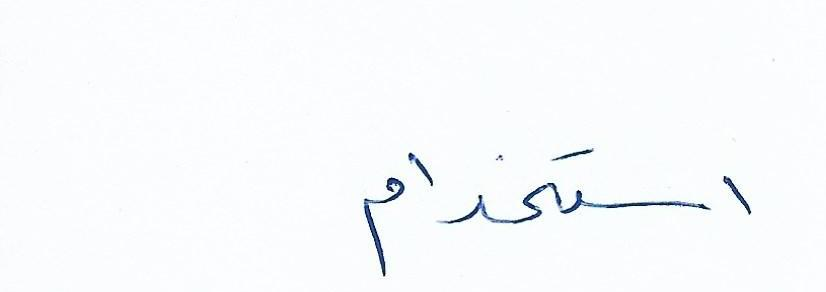 استخدام